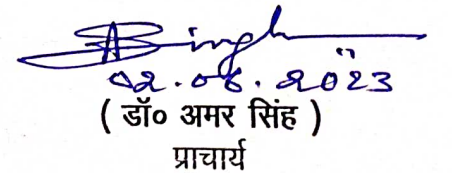 ASingh
02.08.2023
( डॉ० अमर सिंह )
प्राचार्य